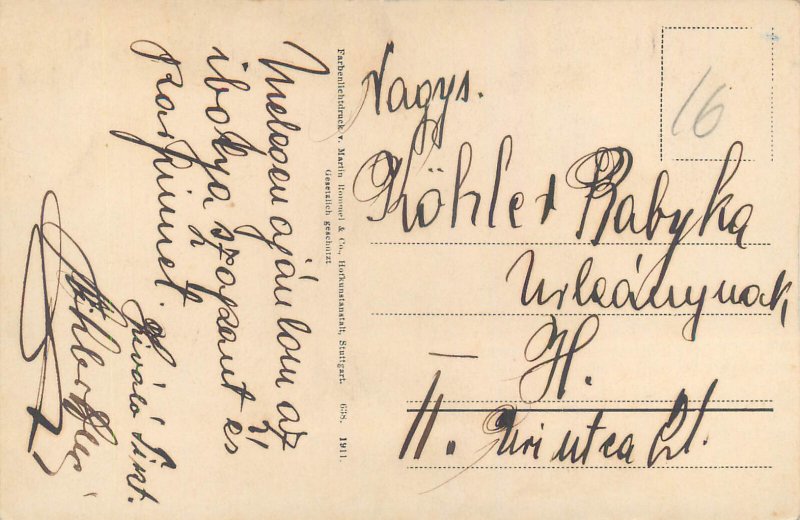 Melegen ajánlom az
ibolya szappant és
Parfümöt.
Kiváló Tiszt.
Farbenlichtdruck v. Martin Rommel & Co., Hofkunstanstalt, Stuttgart. 638. 1911.
Gesetzlich geschützt
16
Nagys.
Köhler Babyka
Urleánynak
H.
II. Uri utca 21.